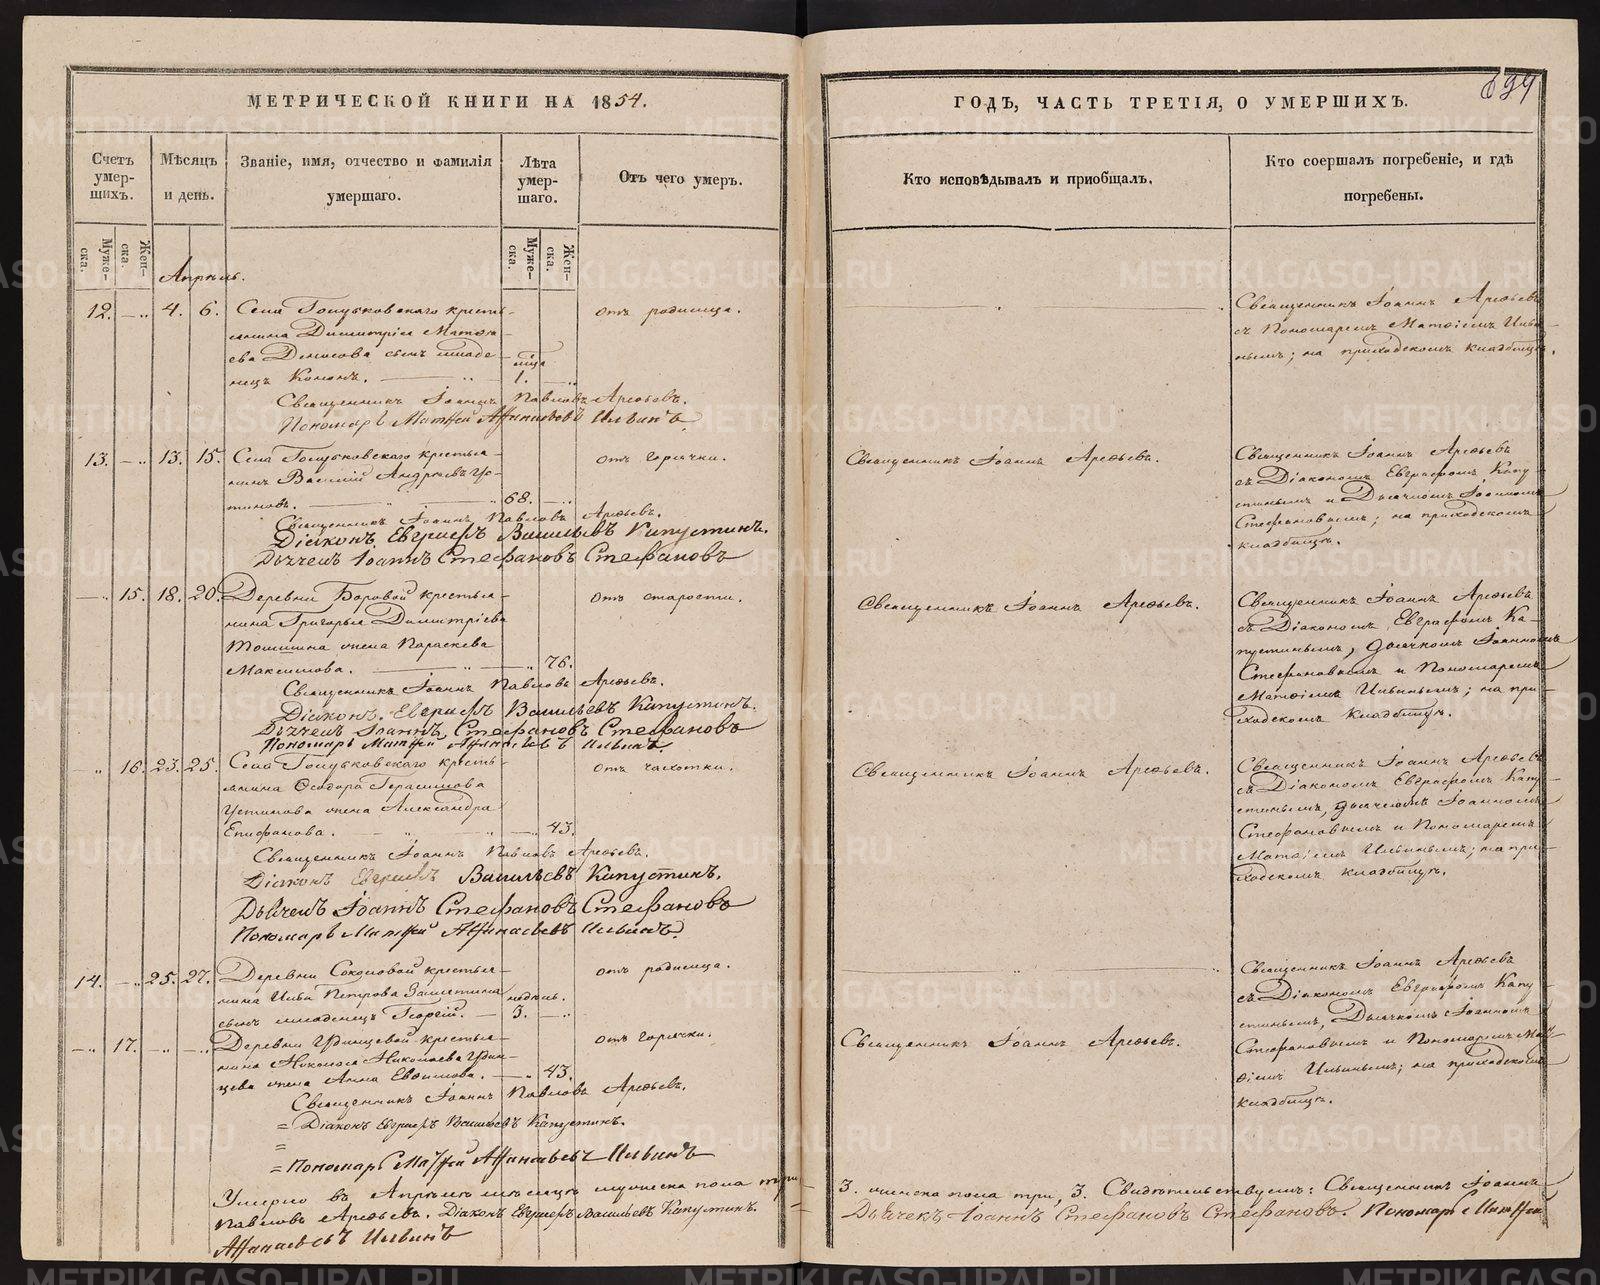 МЕТРИЧЕСКОЙ КНИГИ НА 1854.
Счетъ умер-шихъ.
Мѣсяцъ и день.
Званіе, имя, отчество и фамилія умершаго.
Лѣта умер-шаго.
Отъ чего умеръ.
Муже-ска.
Жен-ска.
Муже-ска.
Жен-ска.
Апрѣль.
12. — „ 4. 6. Села Голубковскаго кресть-
янина Димитрія Матѳѣ-
ева Денисова сынъ младе-
нецъ Кононъ. мѣсца 1. отъ родимца.
Священникъ Іоаннъ Павловъ Арефьевъ.
Пономарь Матѳей Аѳанасьевъ Ильинъ.
13. — „ 13. 15. Села Голубковскаго крестья-
нинъ Василій Андреевъ Ус-
тиновъ. 68. отъ горячки.
Священникъ Іоаннъ Павловъ Арефьевъ.
Діаконъ Евграфъ Васильевъ Капустинъ.
Дьячекъ Іоаннъ Стефановъ Стефановъ
— „ 15. 18. 20. Деревни Боровой крестья-
нина Григорья Димитріева
жена Параскева
Максимова. 76. отъ старости.
Священникъ Іоаннъ Павловъ Арефьевъ.
Діаконъ Евграфъ Васильевъ Капустинъ.
Дьячекъ Іоаннъ Стефановъ Стефановъ
Пономарь Матѳей Аѳанасьевъ Ильинъ.
— „ 16. 23. 25. Села Голубковскаго кресть-
янина Ѳеодора Герасимова
Устинова жена Александра
Епифанова. 43. отъ чахотки.
Священникъ Іоаннъ Павловъ Арефьевъ.
Діаконъ Евграфъ Васильевъ Капустинъ.
Дьячекъ Іоаннъ Стефановъ Стефановъ
Пономарь Матѳей Аѳанасьевъ Ильинъ.
14. — „ 25. 27. Деревни Соколовой крестья-
нина Ильи Петрова Замятина
сынъ младенецъ Георгій. недѣль. 3. отъ родимца.
— „ 17. — „ — „ Деревни Удинцевой крестья-
нина Николая Николаева Удин-
цева жена Анна Евфимова. 43. отъ горячки.
Священникъ Іоаннъ Павловъ Арефьевъ.
= Діаконъ Евграфъ Васильевъ Капустинъ.
=
= Пономарь Матѳей Аѳанасьевъ Ильинъ
Умерло въ Апрѣлѣ мѣсяцѣ мужеска пола три
Павловъ Арефьевъ. Діаконъ Евграфъ Васильевъ Капустинъ.
Аѳанасьевъ Ильинъ
ГОДЪ, ЧАСТЬ ТРЕТІЯ, О УМЕРШИХЪ.
Кто исповѣдывалъ и пріобщалъ.
Кто соершалъ погребеніе, и гдѣ погребены.
Священникъ Іоаннъ Арефьевъ
съ Пономаремъ Матѳіемъ Ильи-
нымъ; на приходскомъ кладбищѣ.
Священникъ Іоаннъ Арефьевъ.
Священникъ Іоаннъ Арефьевъ
съ Діакономъ Евграфомъ Капу-
стинымъ и Дьячкомъ Іоанномъ
Стефановымъ; на приходскомъ
кладбищѣ.
Священникъ Іоаннъ Арефьевъ.
Священникъ Іоаннъ Арефьевъ
съ Діакономъ Евграфомъ Ка-
пустинымъ, дьячкомъ Іоанномъ
Стефановымъ и Пономаремъ
Матѳіемъ Ильинымъ; на при-
ходскомъ кладбищѣ.
Священникъ Іоаннъ Арефьевъ.
Священникъ Іоаннъ Арефьевъ
съ Діакономъ Евграфомъ Капу-
стинымъ, дьячкомъ Іоанномъ
Стефановымъ и Пономаремъ
Матѳіемъ Ильинымъ; на при-
ходскомъ кладбищѣ.
Священникъ Іоаннъ Арефьевъ
съ Діакономъ Евграфомъ Капу-
стинымъ, Дьячкомъ Іоанномъ
Священникъ Іоаннъ Арефьевъ.
Стефановымъ и Пономаремъ Мат-
ѳіемъ Ильинымъ; на приходскомъ
кладбищѣ.
3. женска пола три, 3. Свидѣтельствуемъ: Священникъ Іоаннъ
Дьячекъ Іоаннъ Стефановъ Стефановъ. Пономарь Матѳей
METRIKI.GASO-URAL.RU